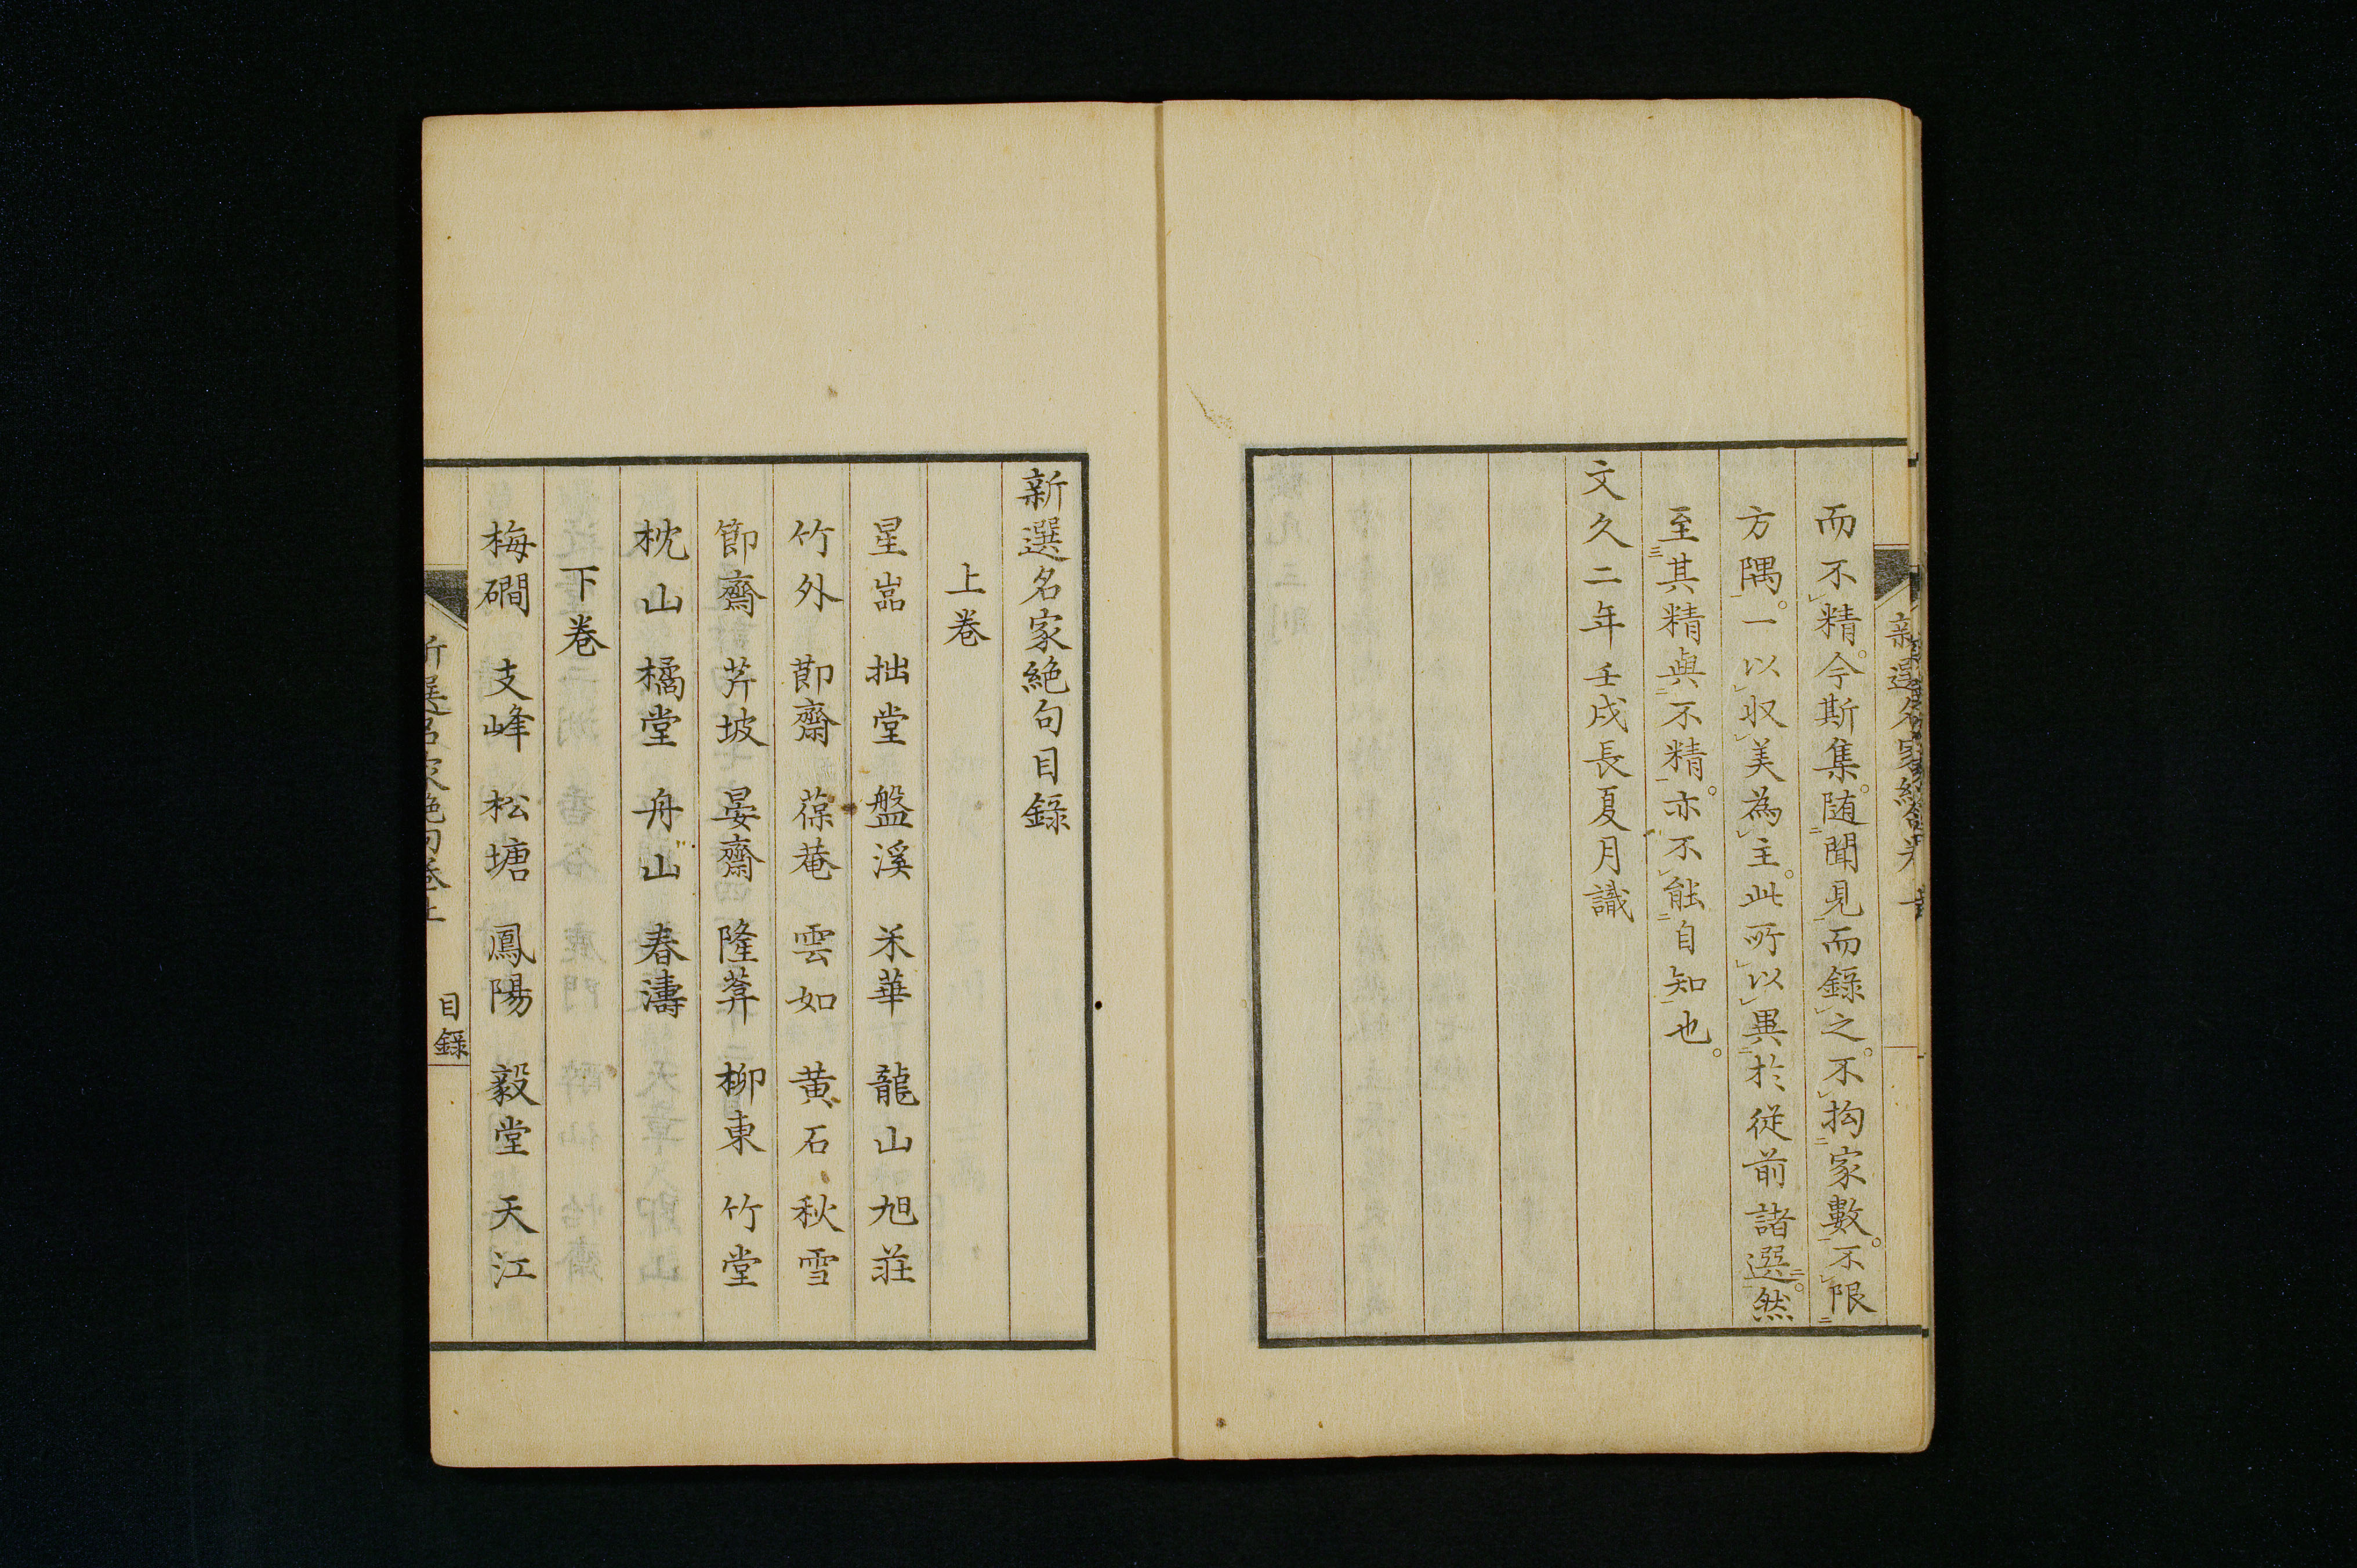 而不精。今斯集。随聞見而錄之。不拘家數。不限
方隅。一以収美為主。此所以異於從前諸選。然
至其精與不精。亦不能自知也。
文久二年壬戌長夏月識
新選名家絶句目錄
上卷
星巖 拙堂 盤溪 米華 龍山 旭莊
竹外 節齋 葆菴 雲如 黄石 秋雪
節齋 芹坡 晏齋 隆葊 柳東 竹堂
枕山 橘堂 舟山 春濤
下卷
梅磵 支峰 松塘 鳳陽 毅堂 天江
目錄